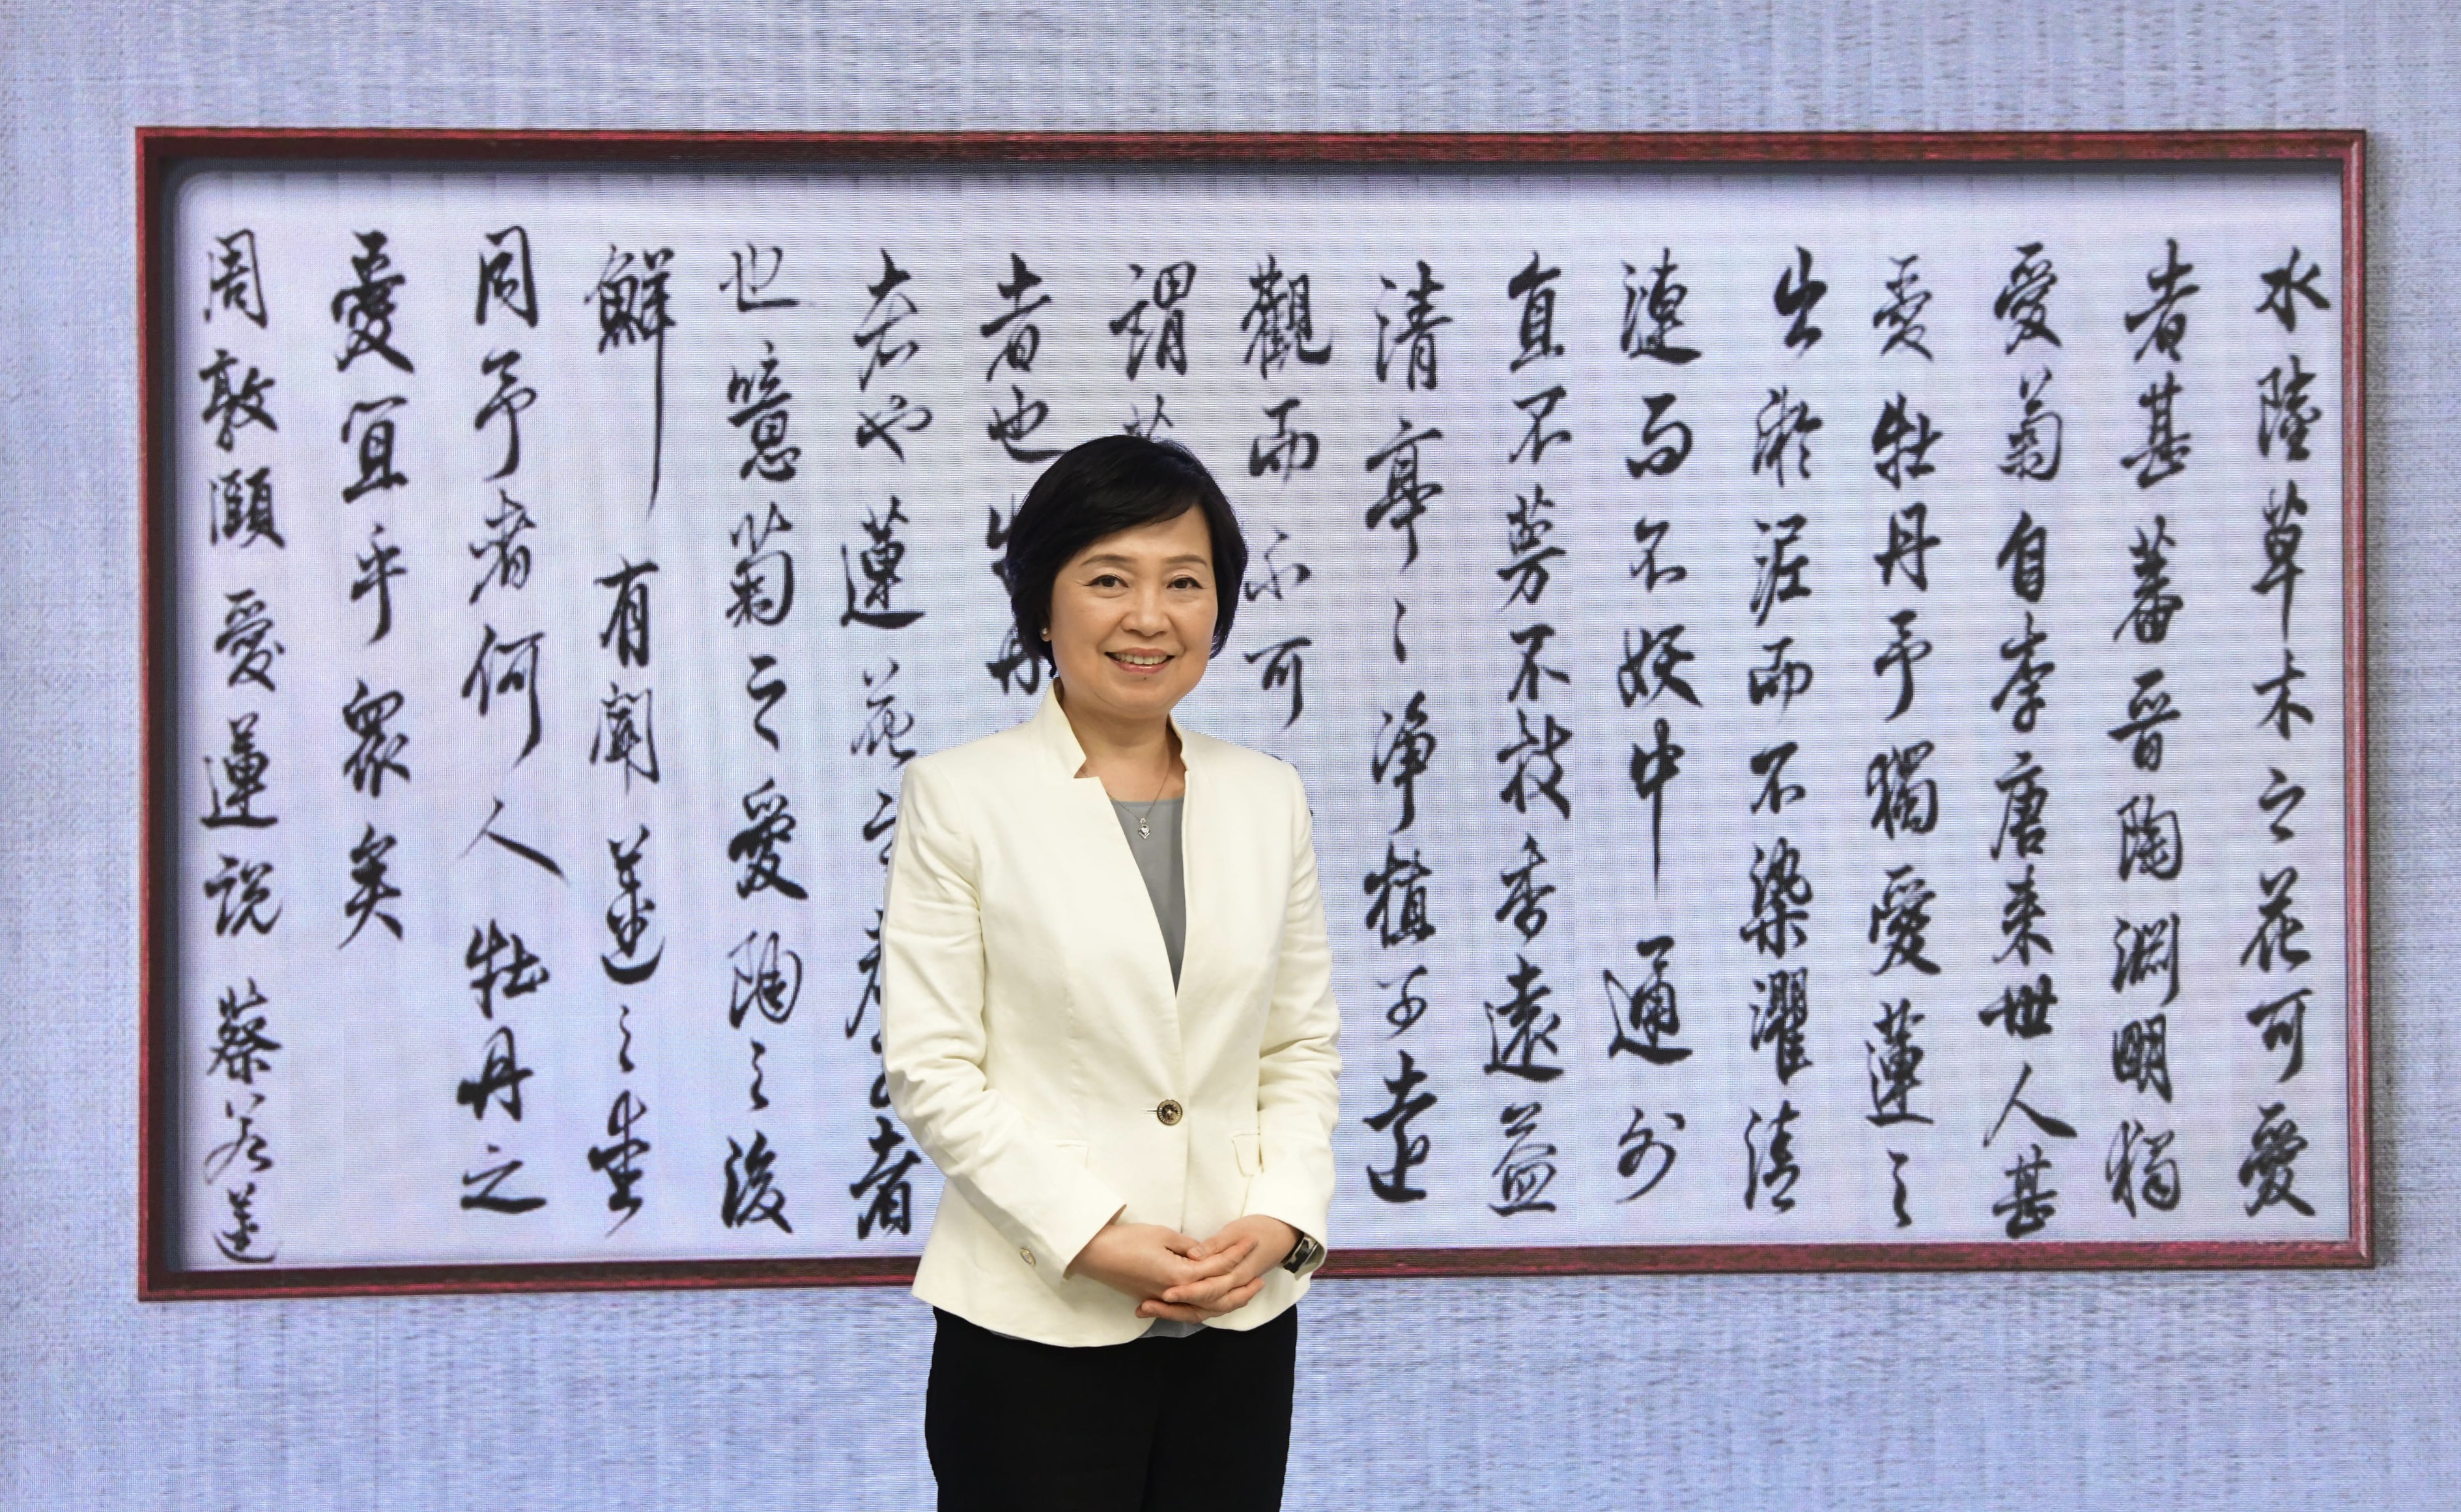 水陸草木之花可愛
者甚蕃晉陶淵明獨
愛菊自李唐來世人甚
愛牡丹予獨愛蓮之
出淤泥而不染濯清
漣而不妖中通外
直不蔓不枝香遠益
清亭々淨植可遠
觀而不可
謂
者也
者也蓮花之者
也噫菊之愛陶之後
鮮有聞蓮之愛
同予者何人牡丹之
愛宜乎眾矣
周敦頤愛蓮說 蔡若蓮